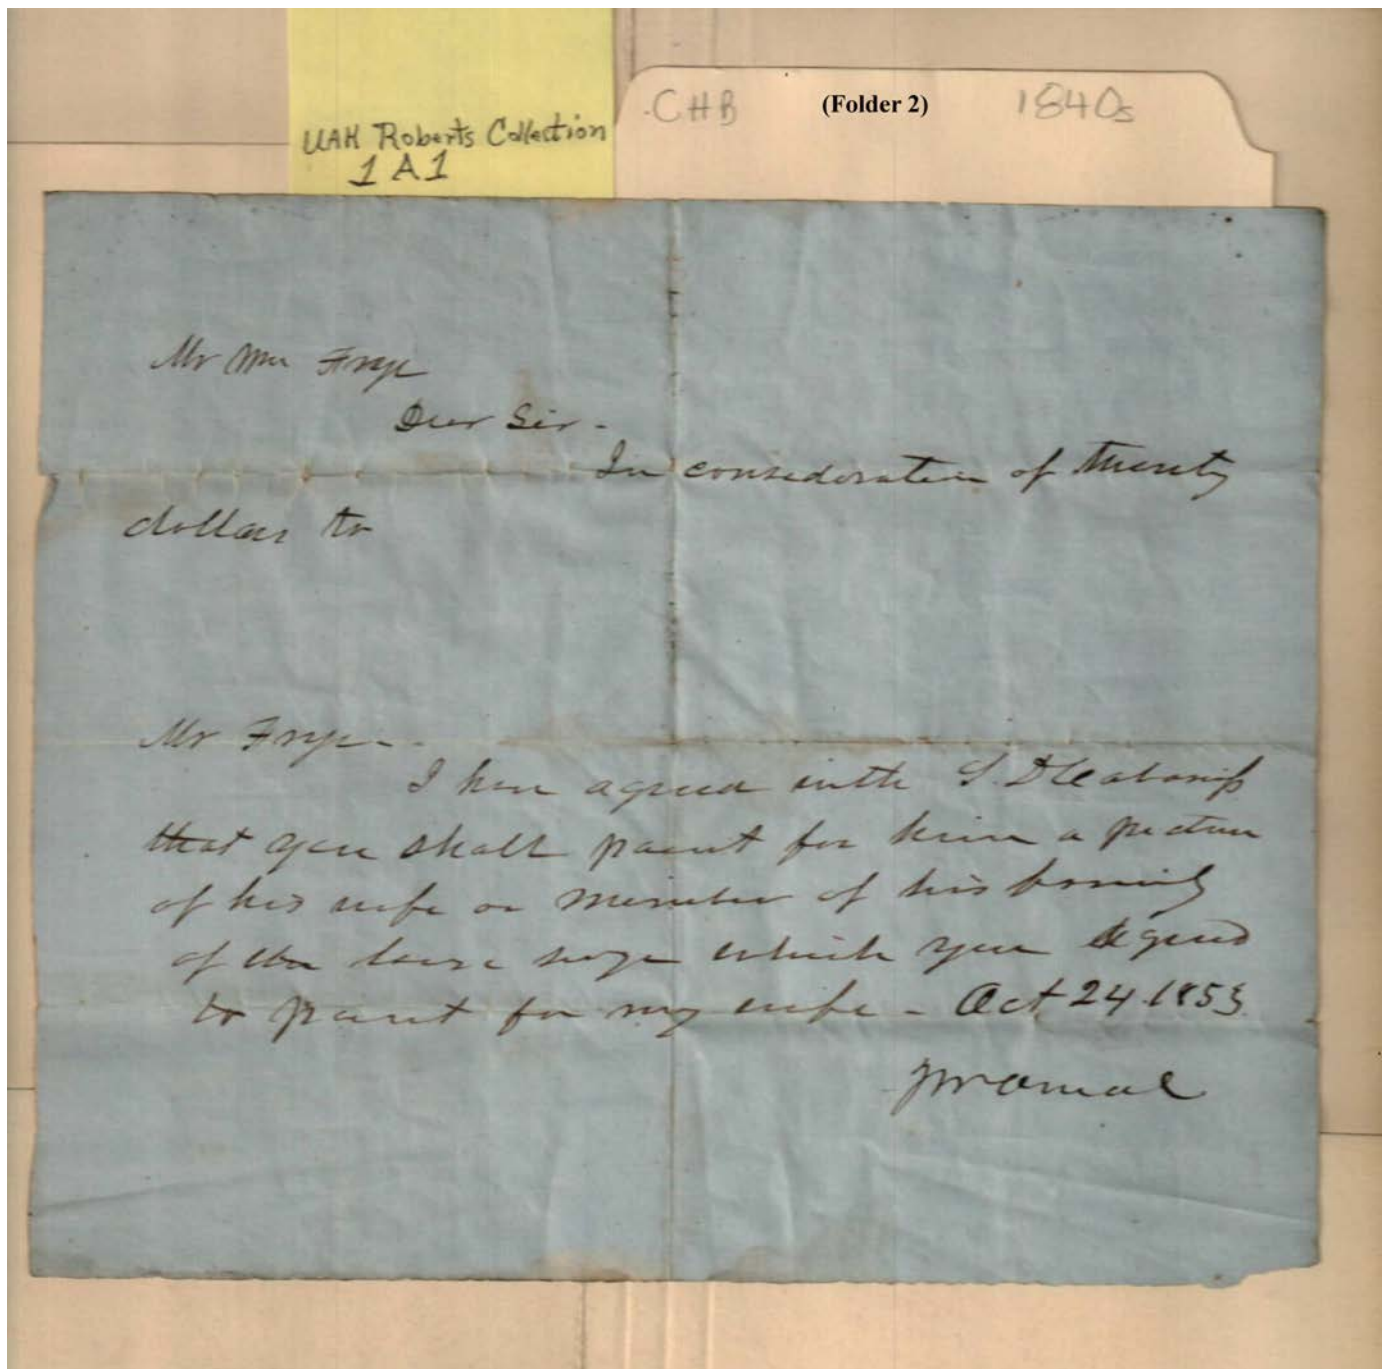 UAH Roberts Collection
1 A 1
CHB (Folder 2) 1840s
Mr Wm Frye
Dear Sir -
In consideration of twenty
dollars to
Mr Frye -
I have agreed with S. D Cabaniss
that you shall paint for him a picture
of his wife or member of his family
of the same size which you agreed
to paint for my wife - Oct 24 1853